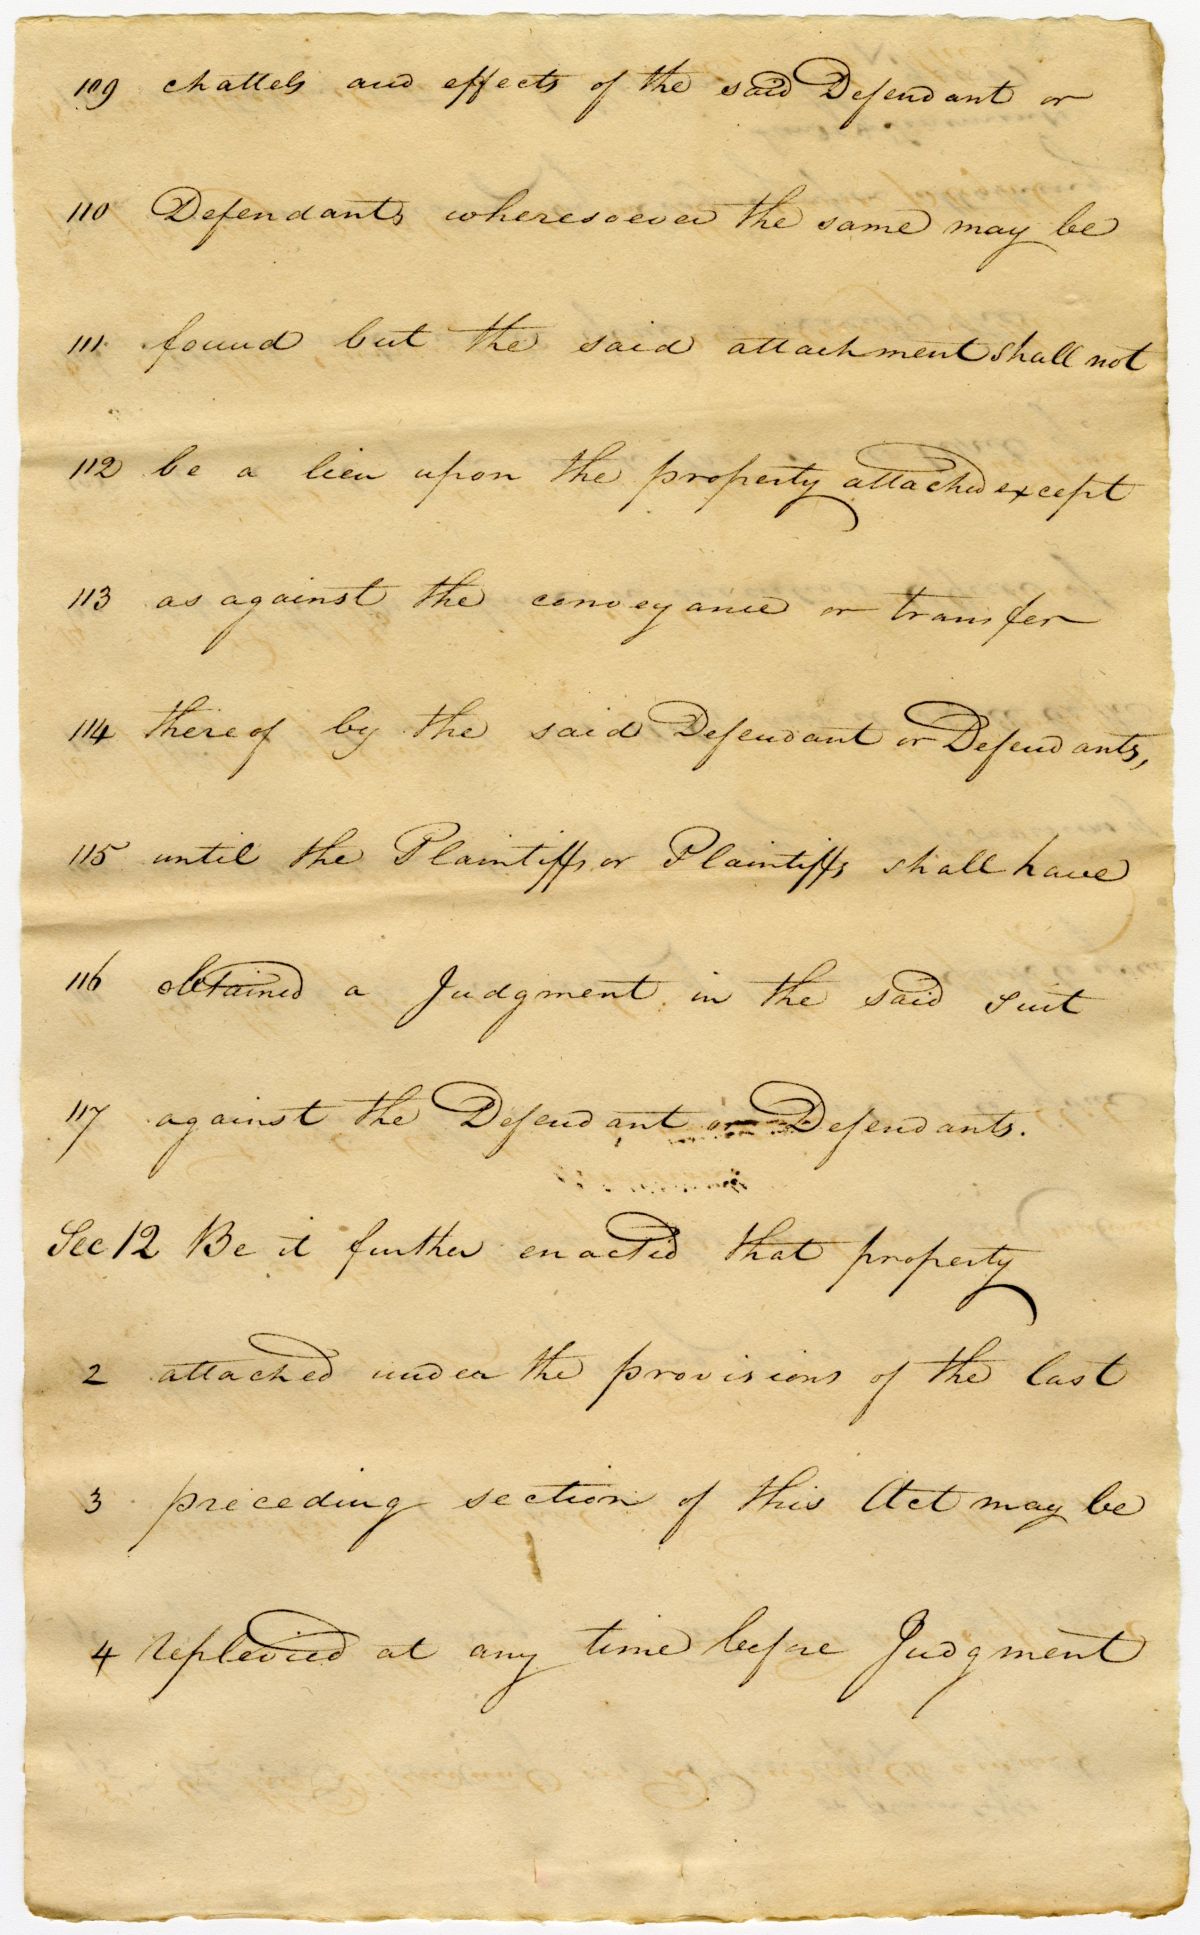 109 chattels and effects of the said Defendant or
110 Defendants wheresoever the same may be
111 found but the said attachment shall not
112 be a lien upon the property attached except
113 as against the conveyance or transfer
114 thereof by the said Defendant or Defendants,
115 until the Plaintiffs or Plaintiffs shall have
116 obtained a Judgment in the said Suit
117 against the Defendant or Defendants.
Sec 12 Be it further enacted that property
2 attached under the provisions of the last
3 preceding section of this Act may be
4 replevied at any time before Judgment